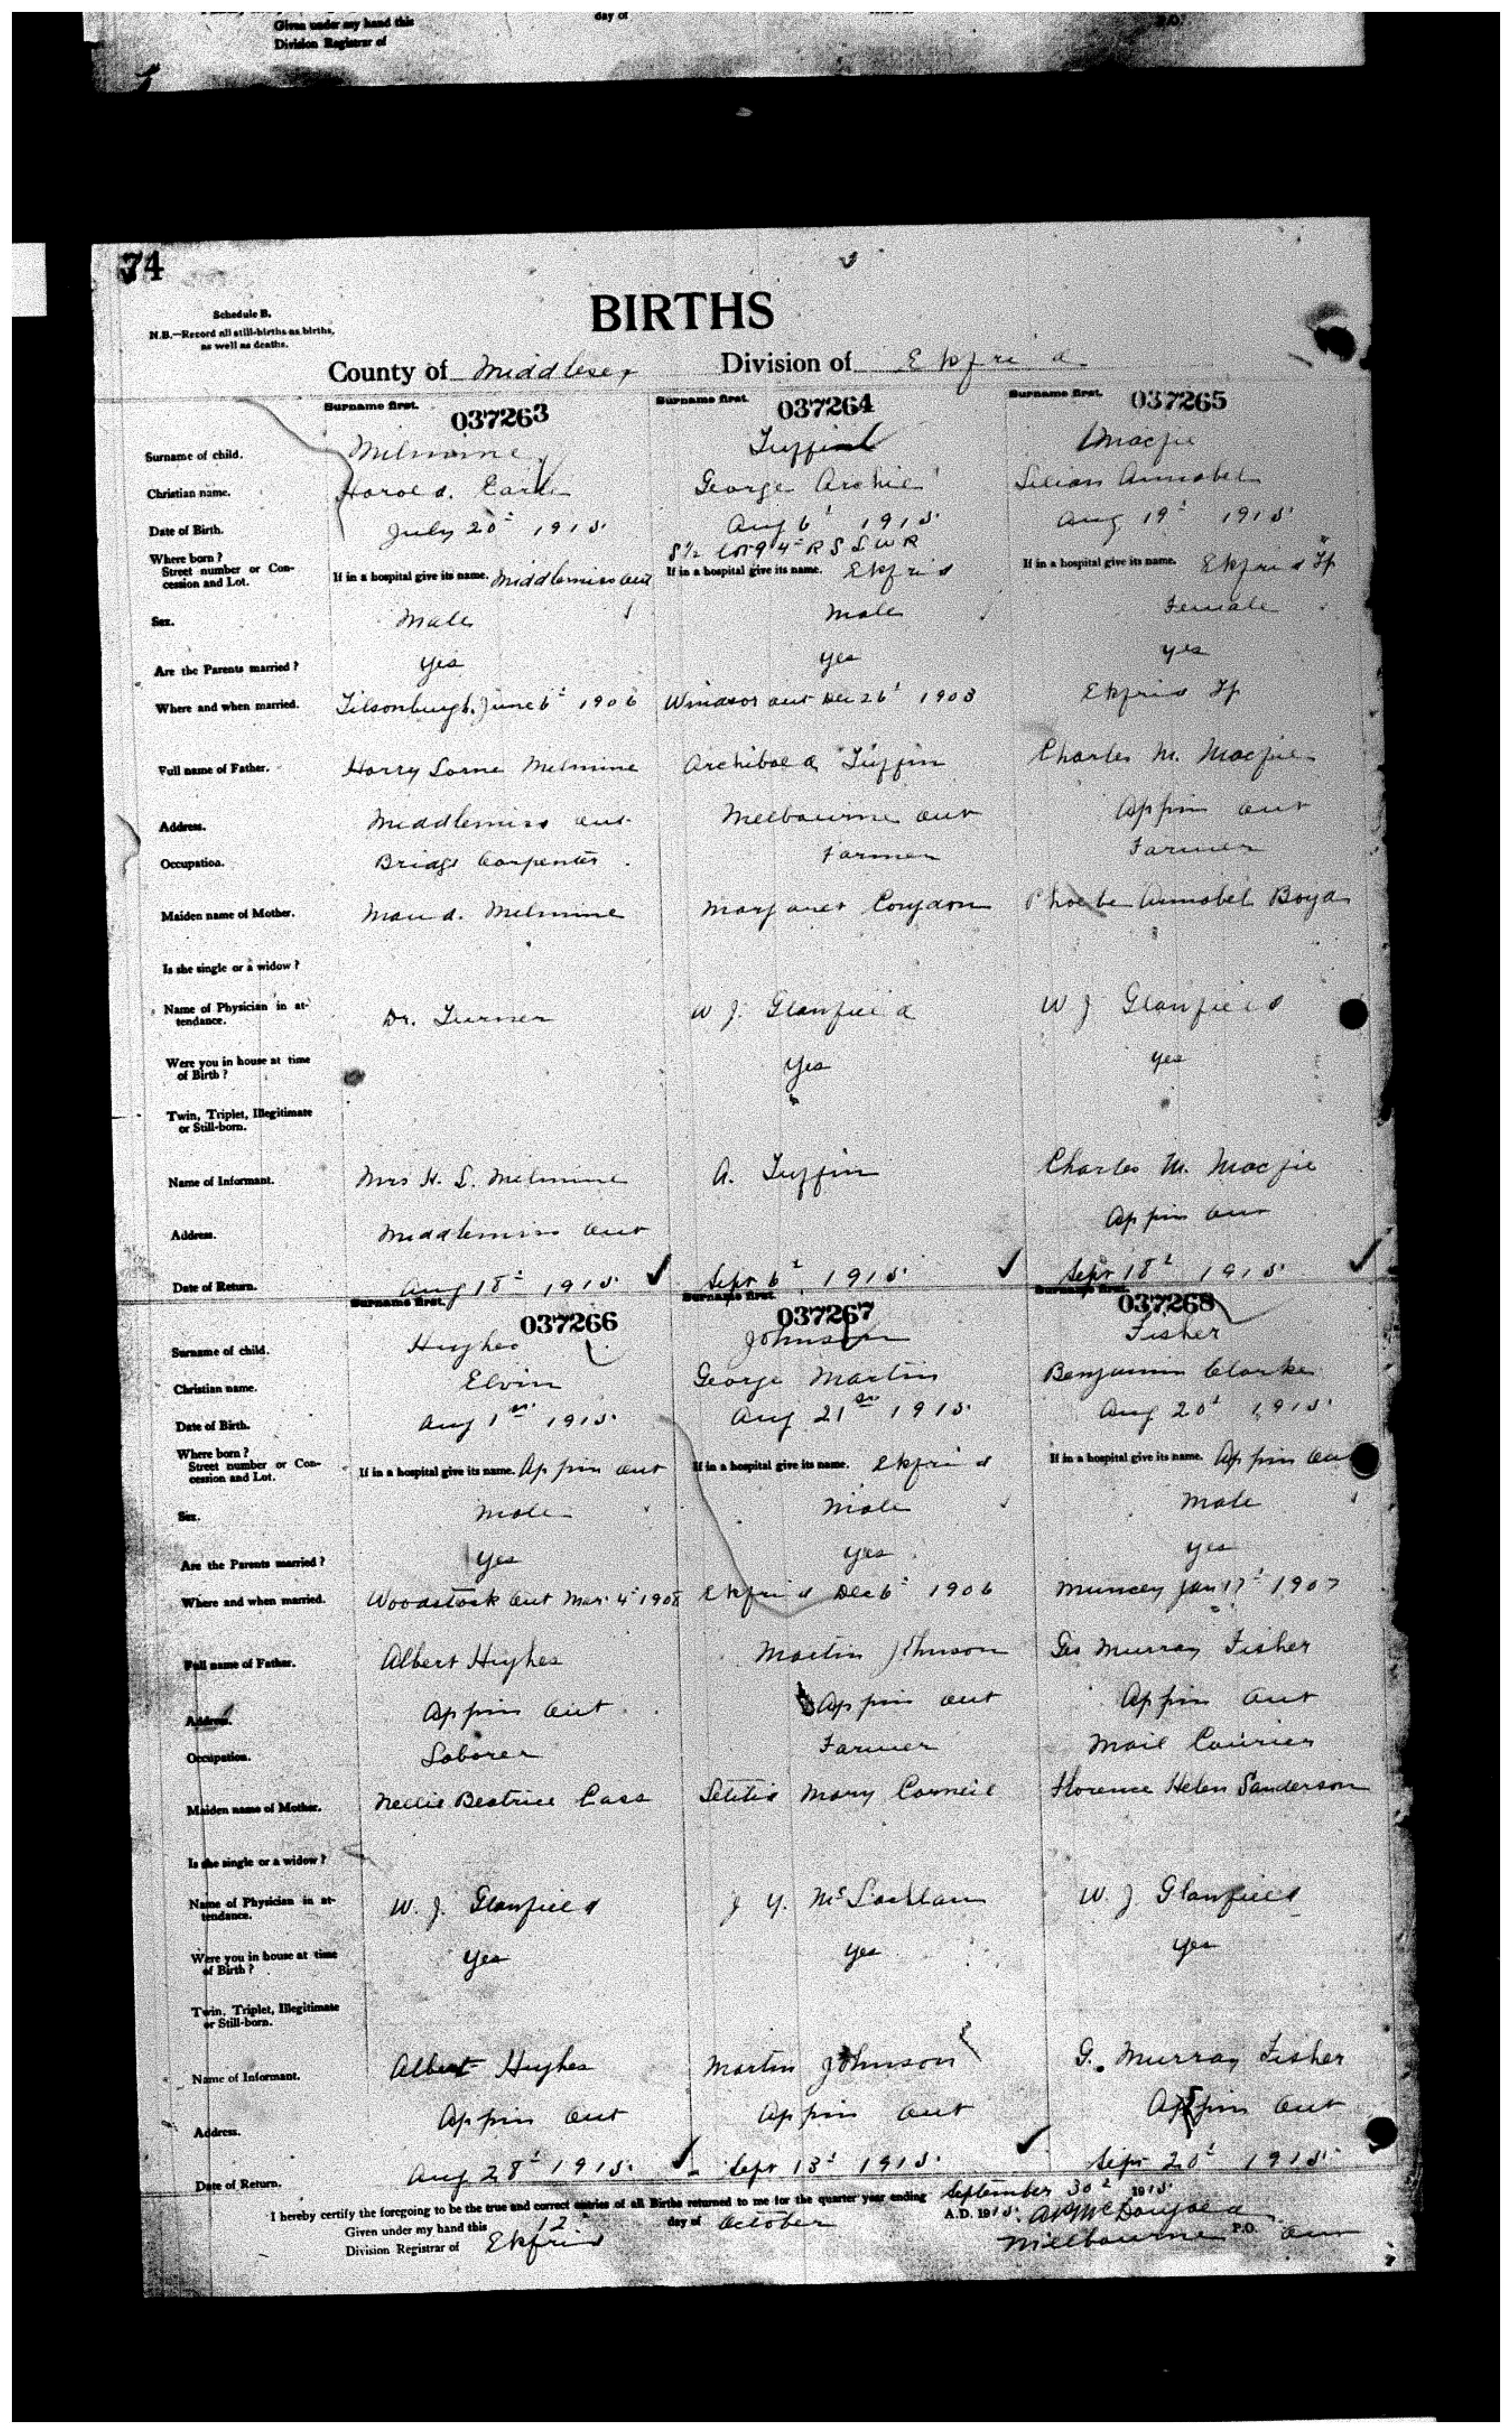 Given under my hand this
day of
Division Registrar of
P.O.
74
Schedule B.
N.B.—Record all still-births as births,
as well as deaths.
BIRTHS
County of Middlesex Division of Ekfrid
Surname first. Surname first. Surname first.
037263 037264 037265
Surname of child. Milmine Tuffin Macfie
Christian name. Harold Earle George Archie Lilian Annabel
Date of Birth. July 20th 1915 Aug 6th 1915 Aug 19th 1915
Where born? S½ Lot 9 4th R S L W R
Street number or Concession and Lot. If in a hospital give its name. Middlemiss Ont If in a hospital give its name. Ekfrid If in a hospital give its name. Ekfrid Tp
Sex. Male Male Female
Are the Parents married? Yes Yes Yes
Where and when married. Tilsonburgh, June 6th 1906 Windsor Ont Dec 26th 1903 Ekfrid Tp
Full name of Father. Harry Lorne Milmine Archibald Tuffin Charles M. Macfie
Address. Middlemiss Ont Melbourne Ont Appin Ont
Occupation. Bridge Carpenter Farmer Farmer
Maiden name of Mother. Maud. Milmine Margaret Phoebe Annabel Boyd
Is she single or a widow?
Name of Physician in attendance. Dr. Turner W J. Glanfield W J Glanfield
Were you in house at time of Birth? Yes Yes
Twin, Triplet, Illegitimate or Still-born.
Name of Informant. Mrs H. L. Milmine A. Tuffin Charles M. Macfie
Address. Middlemiss Ont Appin Ont
Date of Return. Aug 18th 1915 Sept 6th 1915 Sept 18th 1915
Surname first. Surname first. Surname first.
037266 037267 037268
Surname of child. Hughes Johnson Fisher
Christian name. Elvin George Martin Benjamin Clarke
Date of Birth. Aug 1st 1915 Aug 21st 1915 Aug 20th 1915
Where born?
Street number or Concession and Lot. If in a hospital give its name. Appin Ont If in a hospital give its name. Ekfrid If in a hospital give its name. Appin Ont
Sex. Male Male Male
Are the Parents married? Yes Yes Yes
Where and when married. Woodstock Ont Mar. 4th 1908 Ekfrid Dec 6th 1906 Muncey Jan 17th 1907
Full name of Father. Albert Hughes Martin Johnson Geo Murray Fisher
Address. Appin Ont Appin Ont Appin Ont
Occupation. Laborer Farmer Mail Courier
Maiden name of Mother. Nellie Beatrice Cass Letitia Mary Corneil Florence Helen Sanderson
Is she single or a widow?
Name of Physician in attendance. W. J. Glanfield J Y. McLachlan W. J. Glanfield
Were you in house at time of Birth? Yes Yes Yes
Twin, Triplet, Illegitimate or Still-born.
Name of Informant. Albert Hughes Martin Johnson G. Murray Fisher
Address. Appin Ont Appin Ont Appin Ont
Date of Return. Aug 28th 1915 Sept 13th 1915 Sept 20th 1915
I hereby certify the foregoing to be the true and correct entries of all Births returned to me for the quarter year ending September 30th 1915.
Given under my hand this 12 day of October A.D. 1915. A P McDougald
Division Registrar of Ekfrid Melbourne P.O. Ont